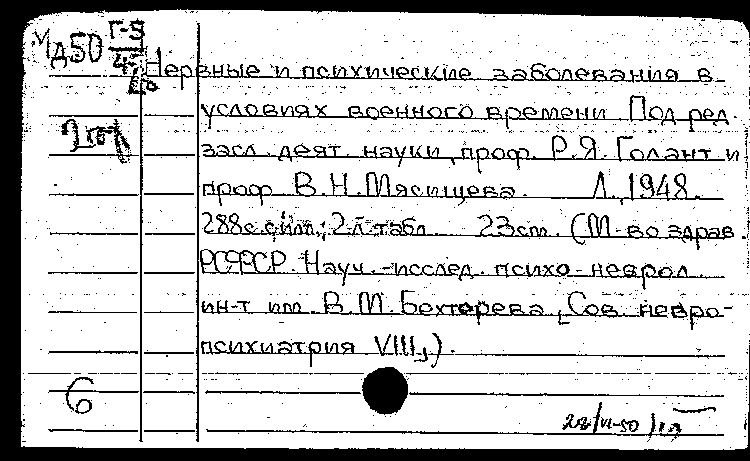 Мд50 Г-5
Нервные и психические заболевания в
условиях военного времени Под ред.
засл. деят. науки, проф. Р.Я. Голант и
проф. В.Н. Мясищева. Л., 1948.
288с. с илл.; 2 л табл. 23см. (М-во здрав.
РСФСР. Науч.-исслед. психо-неврол.
ин-т им. В.М. Бехтерева, [Сов. невро-
психиатрия VIII]).
6